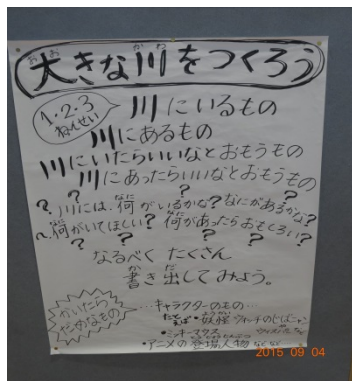 大きな川をつくろう
1.2.3
ねんせい
川にいるもの
川にあるもの
川にいたらいいなとおもうもの
川にあったらいいなとおもうもの
? ? ?
?川には、何がいるかな?なにがあるかな?
?何がいてほしい?何があったらおもしろい?
? ? ?
なるべく たくさん
書き出してみよう。
かいたら
だめなもの
…キャラクターのもの…
たとえば・妖怪ウォッチのじばにゃん
ウィスパーなど
・ミッキーマウス
・アニメの登場人物など
2015 09 04